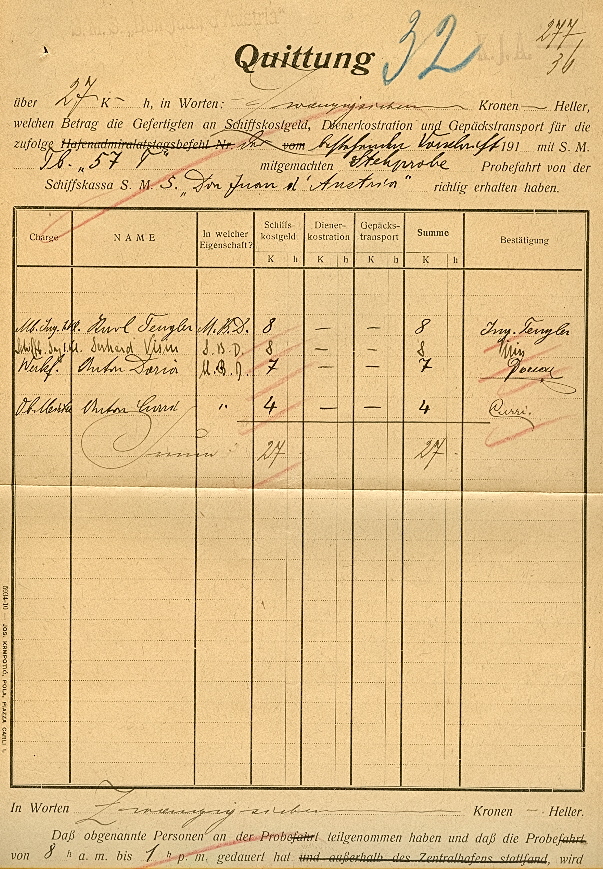 S. M. S. „Don Juan d'Austria“
Quittung 32 K. J. A. 277
36
über 27 K – h, in Worten: Zwanzigsieben Kronen – Heller,
welchen Betrag die Gefertigten an Schiffskostgeld, Dienerkostration und Gepäckstransport für die
zufolge Hafenadmiralatstagsbefehl Nr. vom bestehenden Vorschrift 191 mit S. M.
Tb. „57 T“ mitgemachten Stehprobe Probefahrt von der
Schiffskassa S. M. S. „Don Juan d'Austria“ richtig erhalten haben.
Charge NAME In welcher Eigenschaft? Schiffs-kostgeld Diener-kostration Gepäcks-transport Summe Bestätigung
K h K h K h K h
Karl Tengler M. B. D. 8 – – 8 Ing. Tengler
8 – – 8
Werkf. Anton Doria M. B. D. 7 – – 7
Ob. Meister Anton Curri " 4 – – 4 Curri.
Summa 27 27
In Worten Zwanzigsieben Kronen – Heller.
Daß obgenannte Personen an der Probefahrt teilgenommen haben und daß die Probefahrt,
von 8 h a. m. bis 1 h p. m. gedauert hat und außerhalb des Zentralhafens stattfand, wird
JOS. KRMPOTIĆ, POLA, PIAZZA CARLI 1.